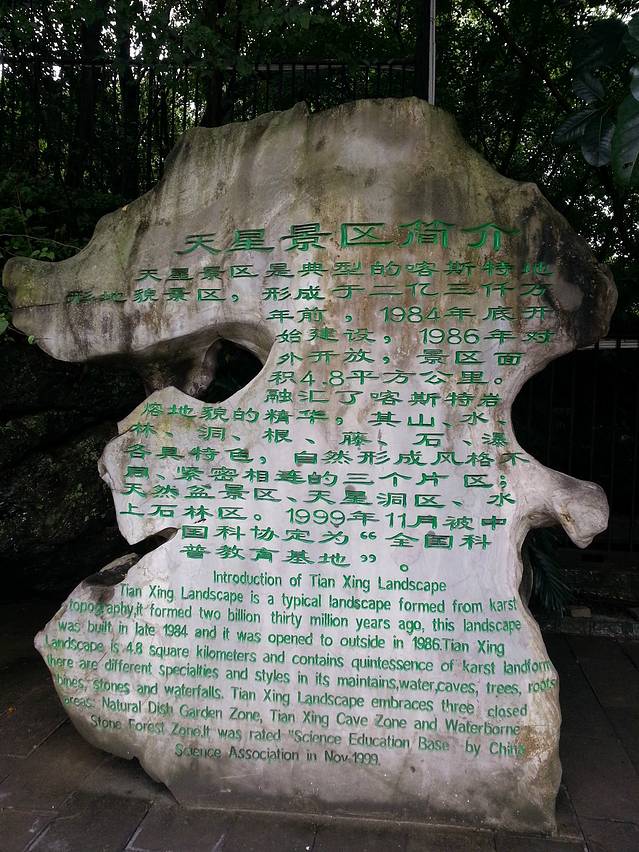 天星景区简介
天星景区是典型的喀斯特地
形地貌景区，形成于二亿三仟万
年前，1984年底开
始建设，1986年对
外开放，景区面
积4.8平方公里。
融汇了喀斯特岩
熔地貌的精华，其山、水、
林、洞、根、藤、石、瀑
各具特色，自然形成风格不
同、紧密相连的三个片区；
天然盆景区、天星洞区、水
上石林区。1999年11月被中
国科协定为“全国科
普教育基地”。
Introduction of Tian Xing Landscape
Tian Xing Landscape is a typical landscape formed from karst
topography,it formed two billion thirty million years ago, this landscape
was built in late 1984 and it was opened to outside in 1986.Tian Xing
Landscape is 4.8 square kilometers and contains quintessence of karst landform
there are different specialties and styles in its maintains,water,caves, trees, roots
bines, stones and waterfalls. Tian Xing Landscape embraces three closed
areas: Natural Dish Garden Zone, Tian Xing Cave Zone and Waterborne
Stone Forest Zone.It was rated "Science Education Base" by China
Science Association in Nov.1999.